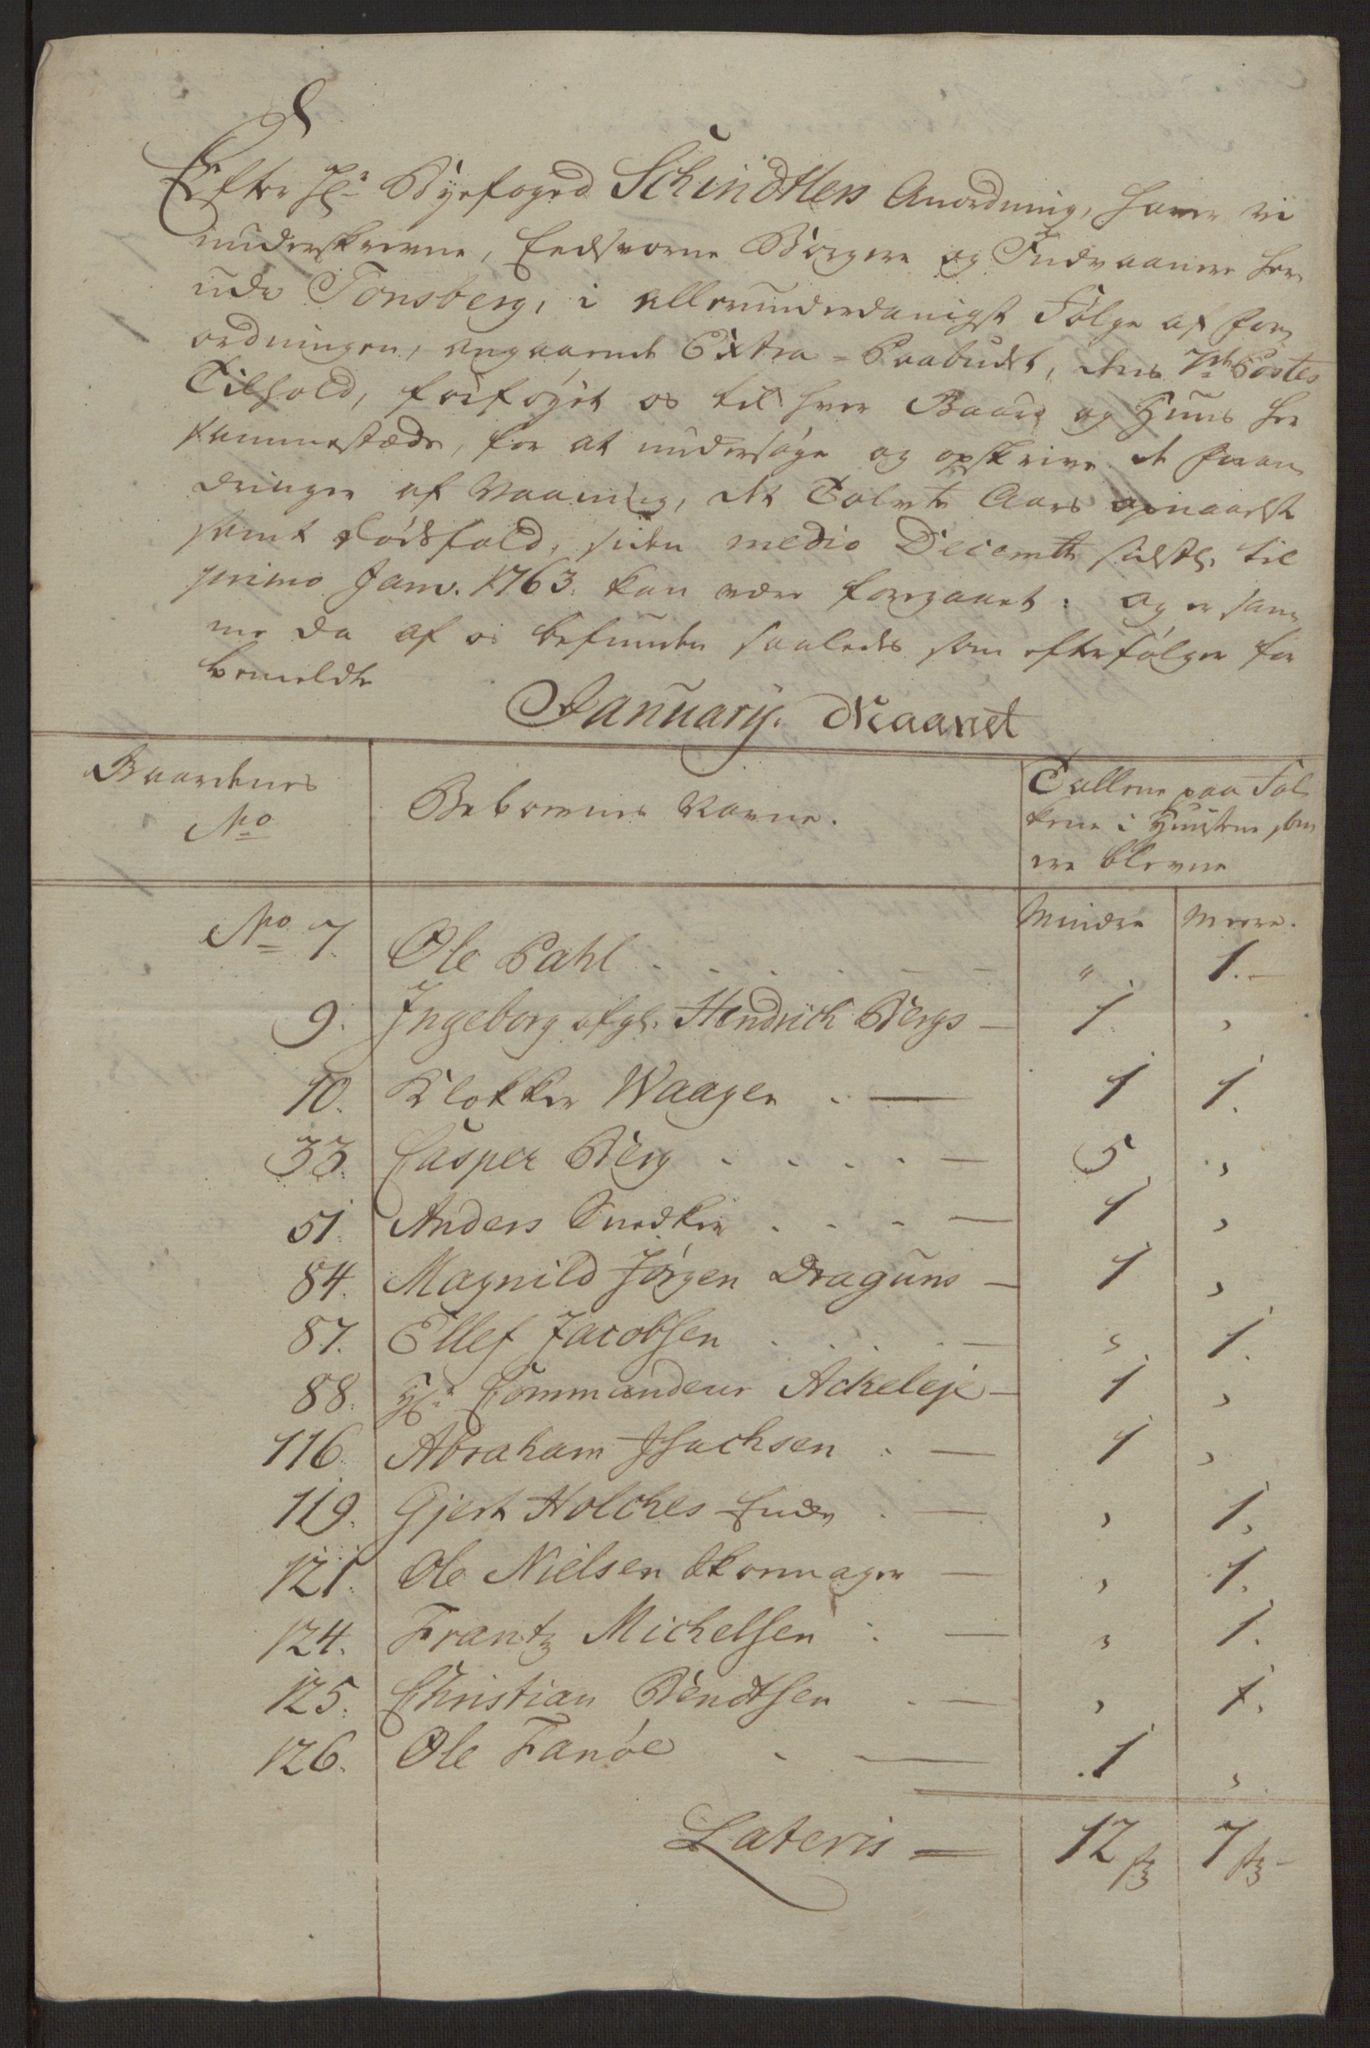 Efter Hr. Byefoged Schindtlers Anordning, haver vi
underskrevne, Eedsvorne Borgere og Indvaanere her
udi Tonsberg, i allerunderdanigst Følge af For
ordningen, angaaende Extra-Paabudet, dens 7de Postes
Tilhold, forføyet os til hver Gaard og Huus her
sammestæds, for at undersøge og opskrive de foran
dringer af Vaaning, det Tolvte Aars opnaaelse
samt Dødsfald, siden medio Decembr. sidstl. til
primo Janv. 1763. kan være foregaaet. og er sam
me da af os befunden saaledes som efterfølger for
bemeldte
January. Maanet
Gaardenes
No
Beboernes Navne.
Tallene paa Fol
kene i Huusene som
ere blevne
Mindre Meere.
No 7. Ole Pahl . . . . . — — " 1.—
9. Ingeborg afgl. Hendrich Bergs — 1. ,
10. Klokker Waagen . — 1 1.
33. Casper Berg . . . . — 5 ,
51. Anders Snedker . . . — 1 ,
84. Magnild Jørgen Draguns — 1 ,
87. Ellef Jacobsen . . . . — , 1.
88. Hr. Commandeur Ackeleje — 1 ,
116. Abraham Isachsen . — 1 ,
119. Gjert Holches Enke . — , 1.
121. Ole Nielsen Skoemager — , 1.
124. Frantz Michelsen . — " 1.
125. Christian Bendtsen . — , 1.
126. Ole Fanöe . — .1 ,
Lateris — 12 7